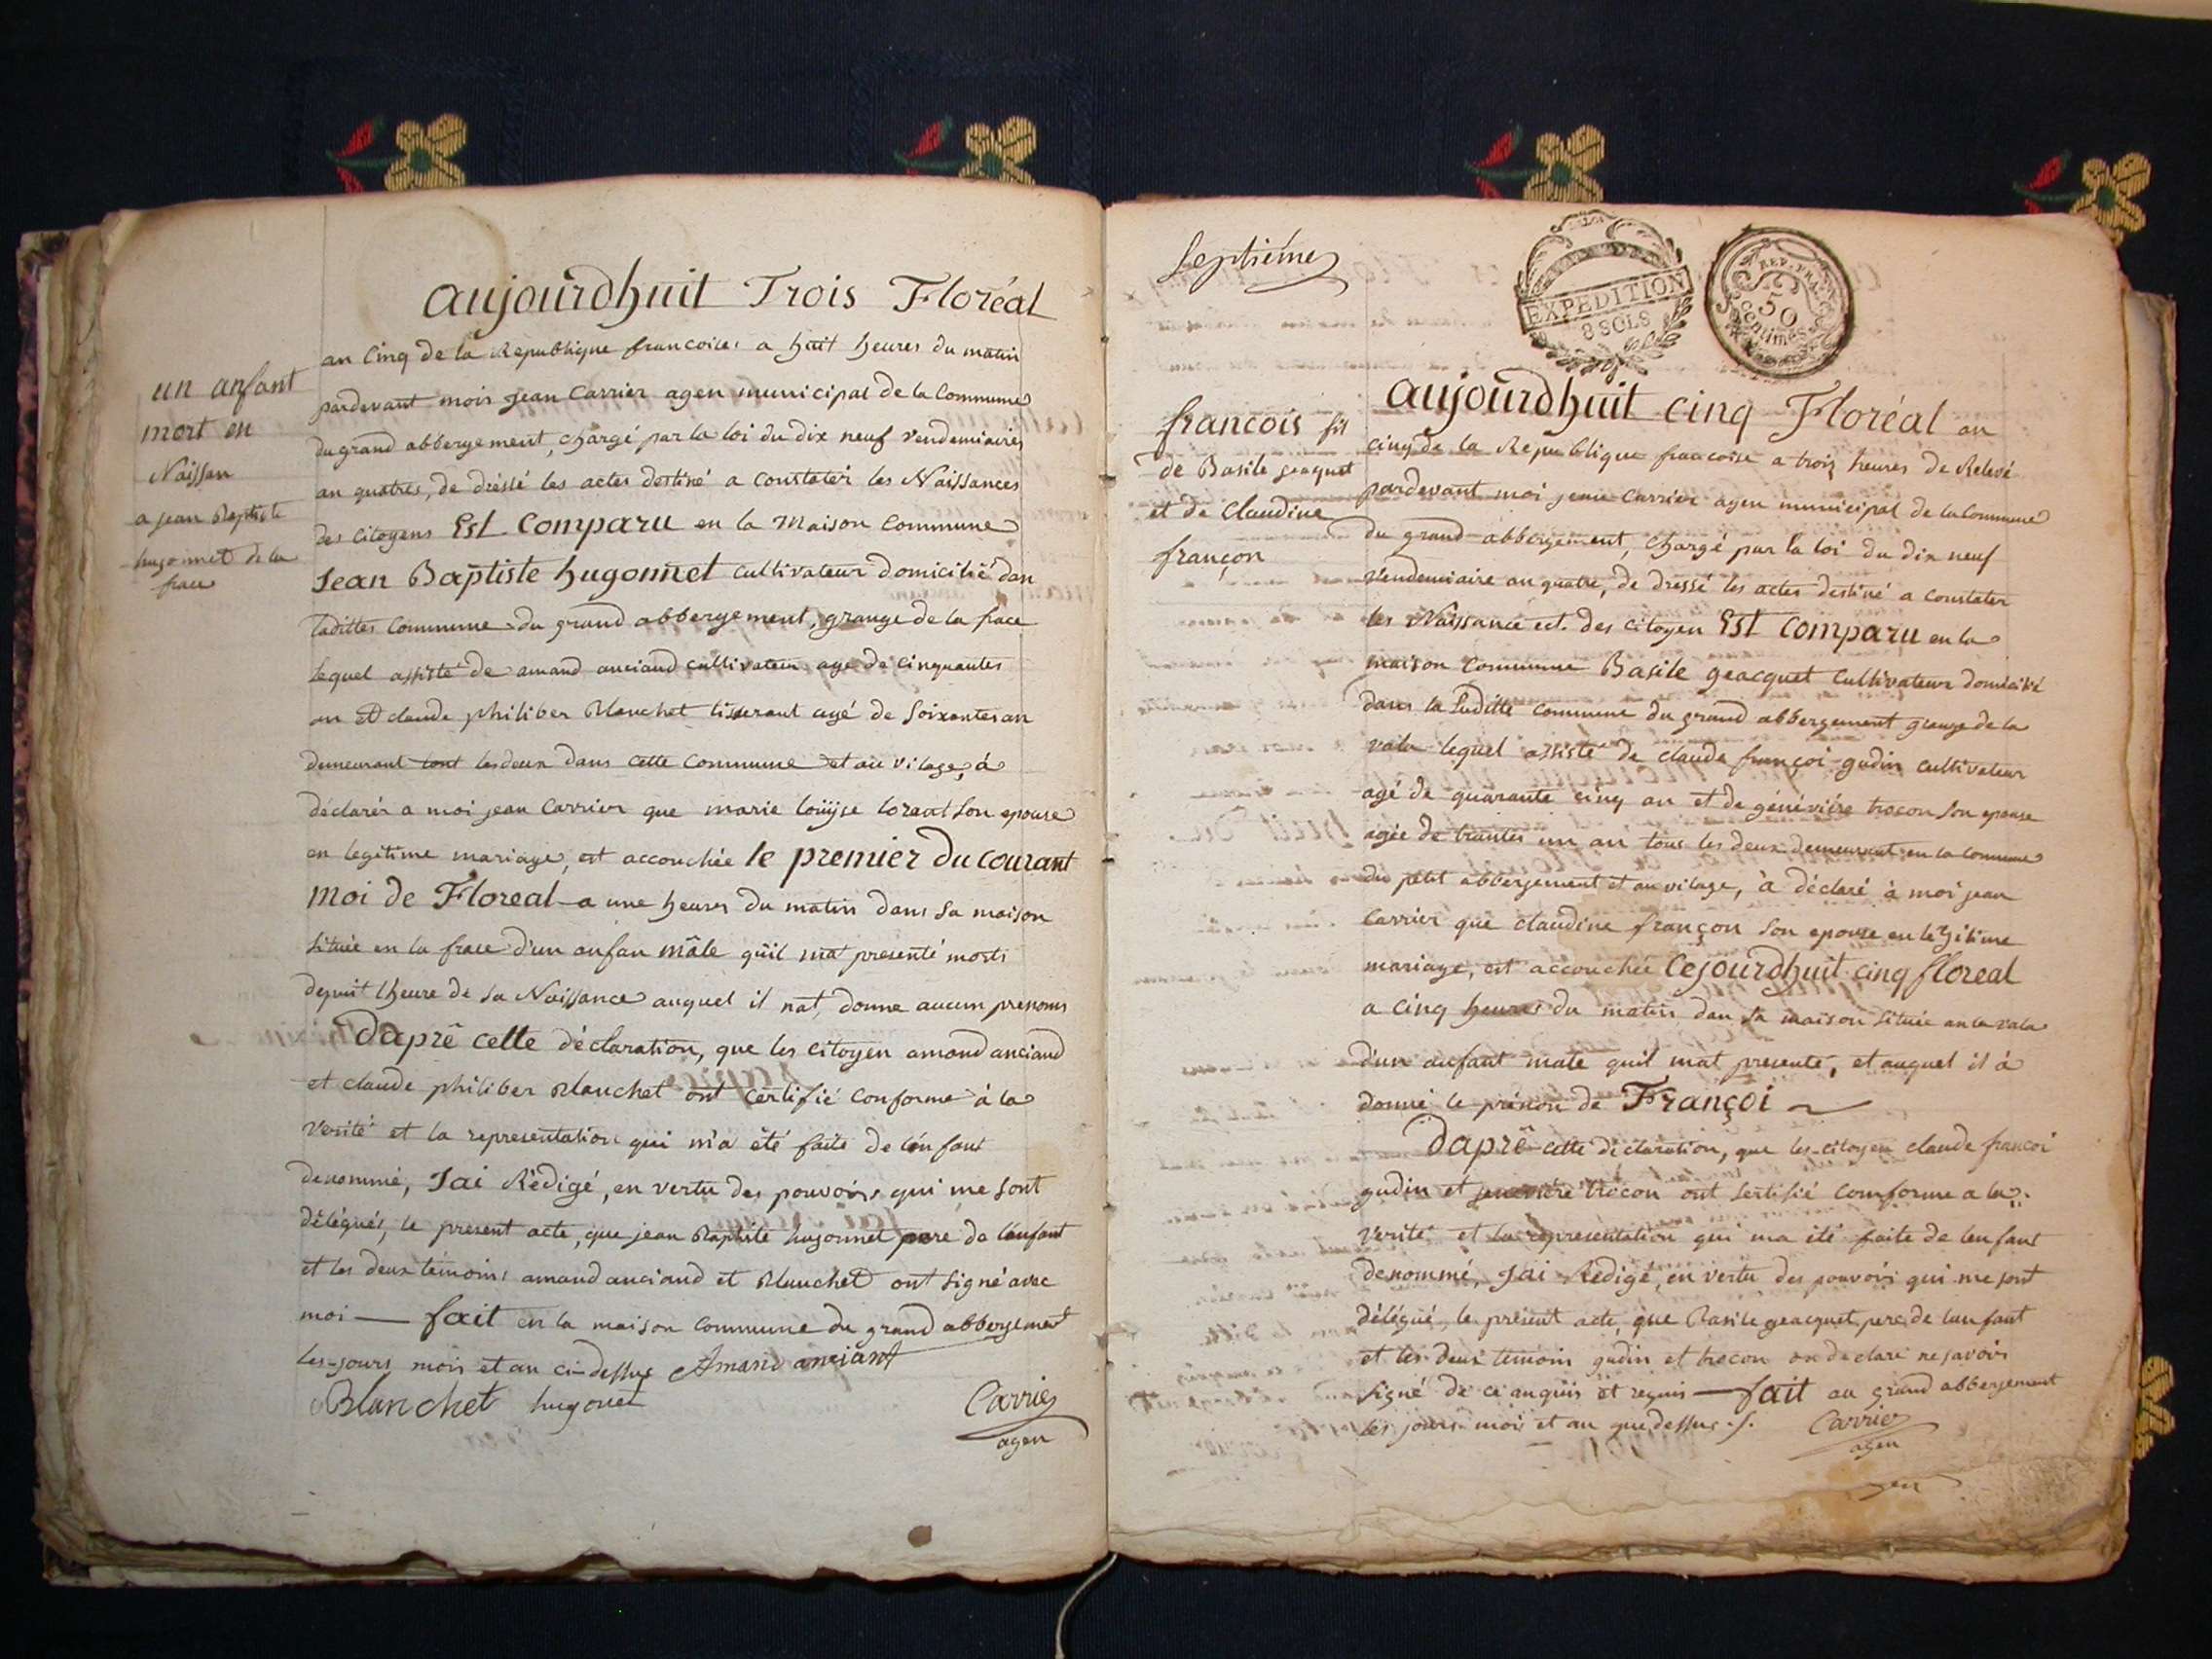 un anfant
mort en
Naissan
a jean Baptiste
hugonnet de la
frace
aujourdhuit Trois Floréal
an Cinq de la Republique francoises a huit heures du matin
pardevant mois jean Carrier agen municipal de la Commune
du grand abbergement, chargé par la loi du dix neuf vendemiaires
an quatres, de dréssé les actes destiné a Constatér les Naissances
des Citoyens Est Comparu en la Maison Commune
Jean Baptiste hugonnet Cultivateur domicilié dan
laditte Commune du grand abbergement, grange de la frace
lequel assisté de amand anciand cultivateur agé de cinquantes
an et claude philiber Blanchet tisserant agé de Soixantes an
demeurant tout les deux dans cette Commune et au vilage, à
déclarér a moi jean Carrier que marie louijse lorent son epouse
en legitime mariage, est accouchée le premier du courant
moi de Floreal a une heures du matin dans sa maison
située en la frace d'un anfan mâle quil mat presenté morts
depuit lheure de sa Naissance auquel il nat donne aucun prenoms
Daprê cette déclaration, que les citoyen amand anciand
et claude philiber Blanchet ont certifié Conforme à la
verité et la representation qui m'a été faite de lenfant
denommé, Jai Rédigé, en vertu des pouvoirs qui me sont
délégués, le present acte, que jean Baptiste hugonnet pere de lanfant
et les deux témoins amand anciand et Blanchet ont signé avec
moi — fait en la maison Commune du grand abbergement
les jours mois et an ci-dessus Amand anciant
Blanchet hugonet
Carrier
agen
Septiéme
EXPEDITION
8 SOLS
REP. FRA.
50
Centimes
francois fil
de Basile geacquet
et de Claudine
françon
aujourdhuit cinq Floréal an
cinq de la Republique francoise a trois heures de Relevé
pardevant moi jean Carrier agen municipal de la Commune
du grand abbergement, Chargé par la loi du dix neuf
vendemiaire an quatre, de dressé les actes destiné a constater
les Naissance ect. des citoyen Est Comparu en la
maison Commune Basile geacquet Cultivateur domicilié
dans la Laditte Commune du grand abbergement grange de la
vala lequel assisté de claude françoi gudin cultivateur
agé de quarante cinq an et de généviére trocon son epouse
agée de trantes un an tous les deux demeurant en la Commune
du petit abbergement et au vilage, à déclaré à moi jean
Carrier que claudine françon son epouse en legitime
mariage, est accouchée Cejourdhuit cinq floreal
a Cinq heures du matin dan sa maison située an la vala
d'un anfant mâle quil mat presenté, et auquel il à
donné le prénon de Françoi
Daprê cette déclaration, que les citoyen claude francoi
gudin et genevière trocon ont certifié Comforme a la
verité et la representation qui ma été faite de lenfant
denommé, Jai Redigé, en vertu des pouvoirs qui me sont
délégué, le présent acte, que Basile geacquet pere de lanfant
et les deux témoin gudin et trocon on declaré ne savoir
signé de ce anquis et requis — fait au grand abbergement
les jours mois et an que dessus ./.
Carrier
agen